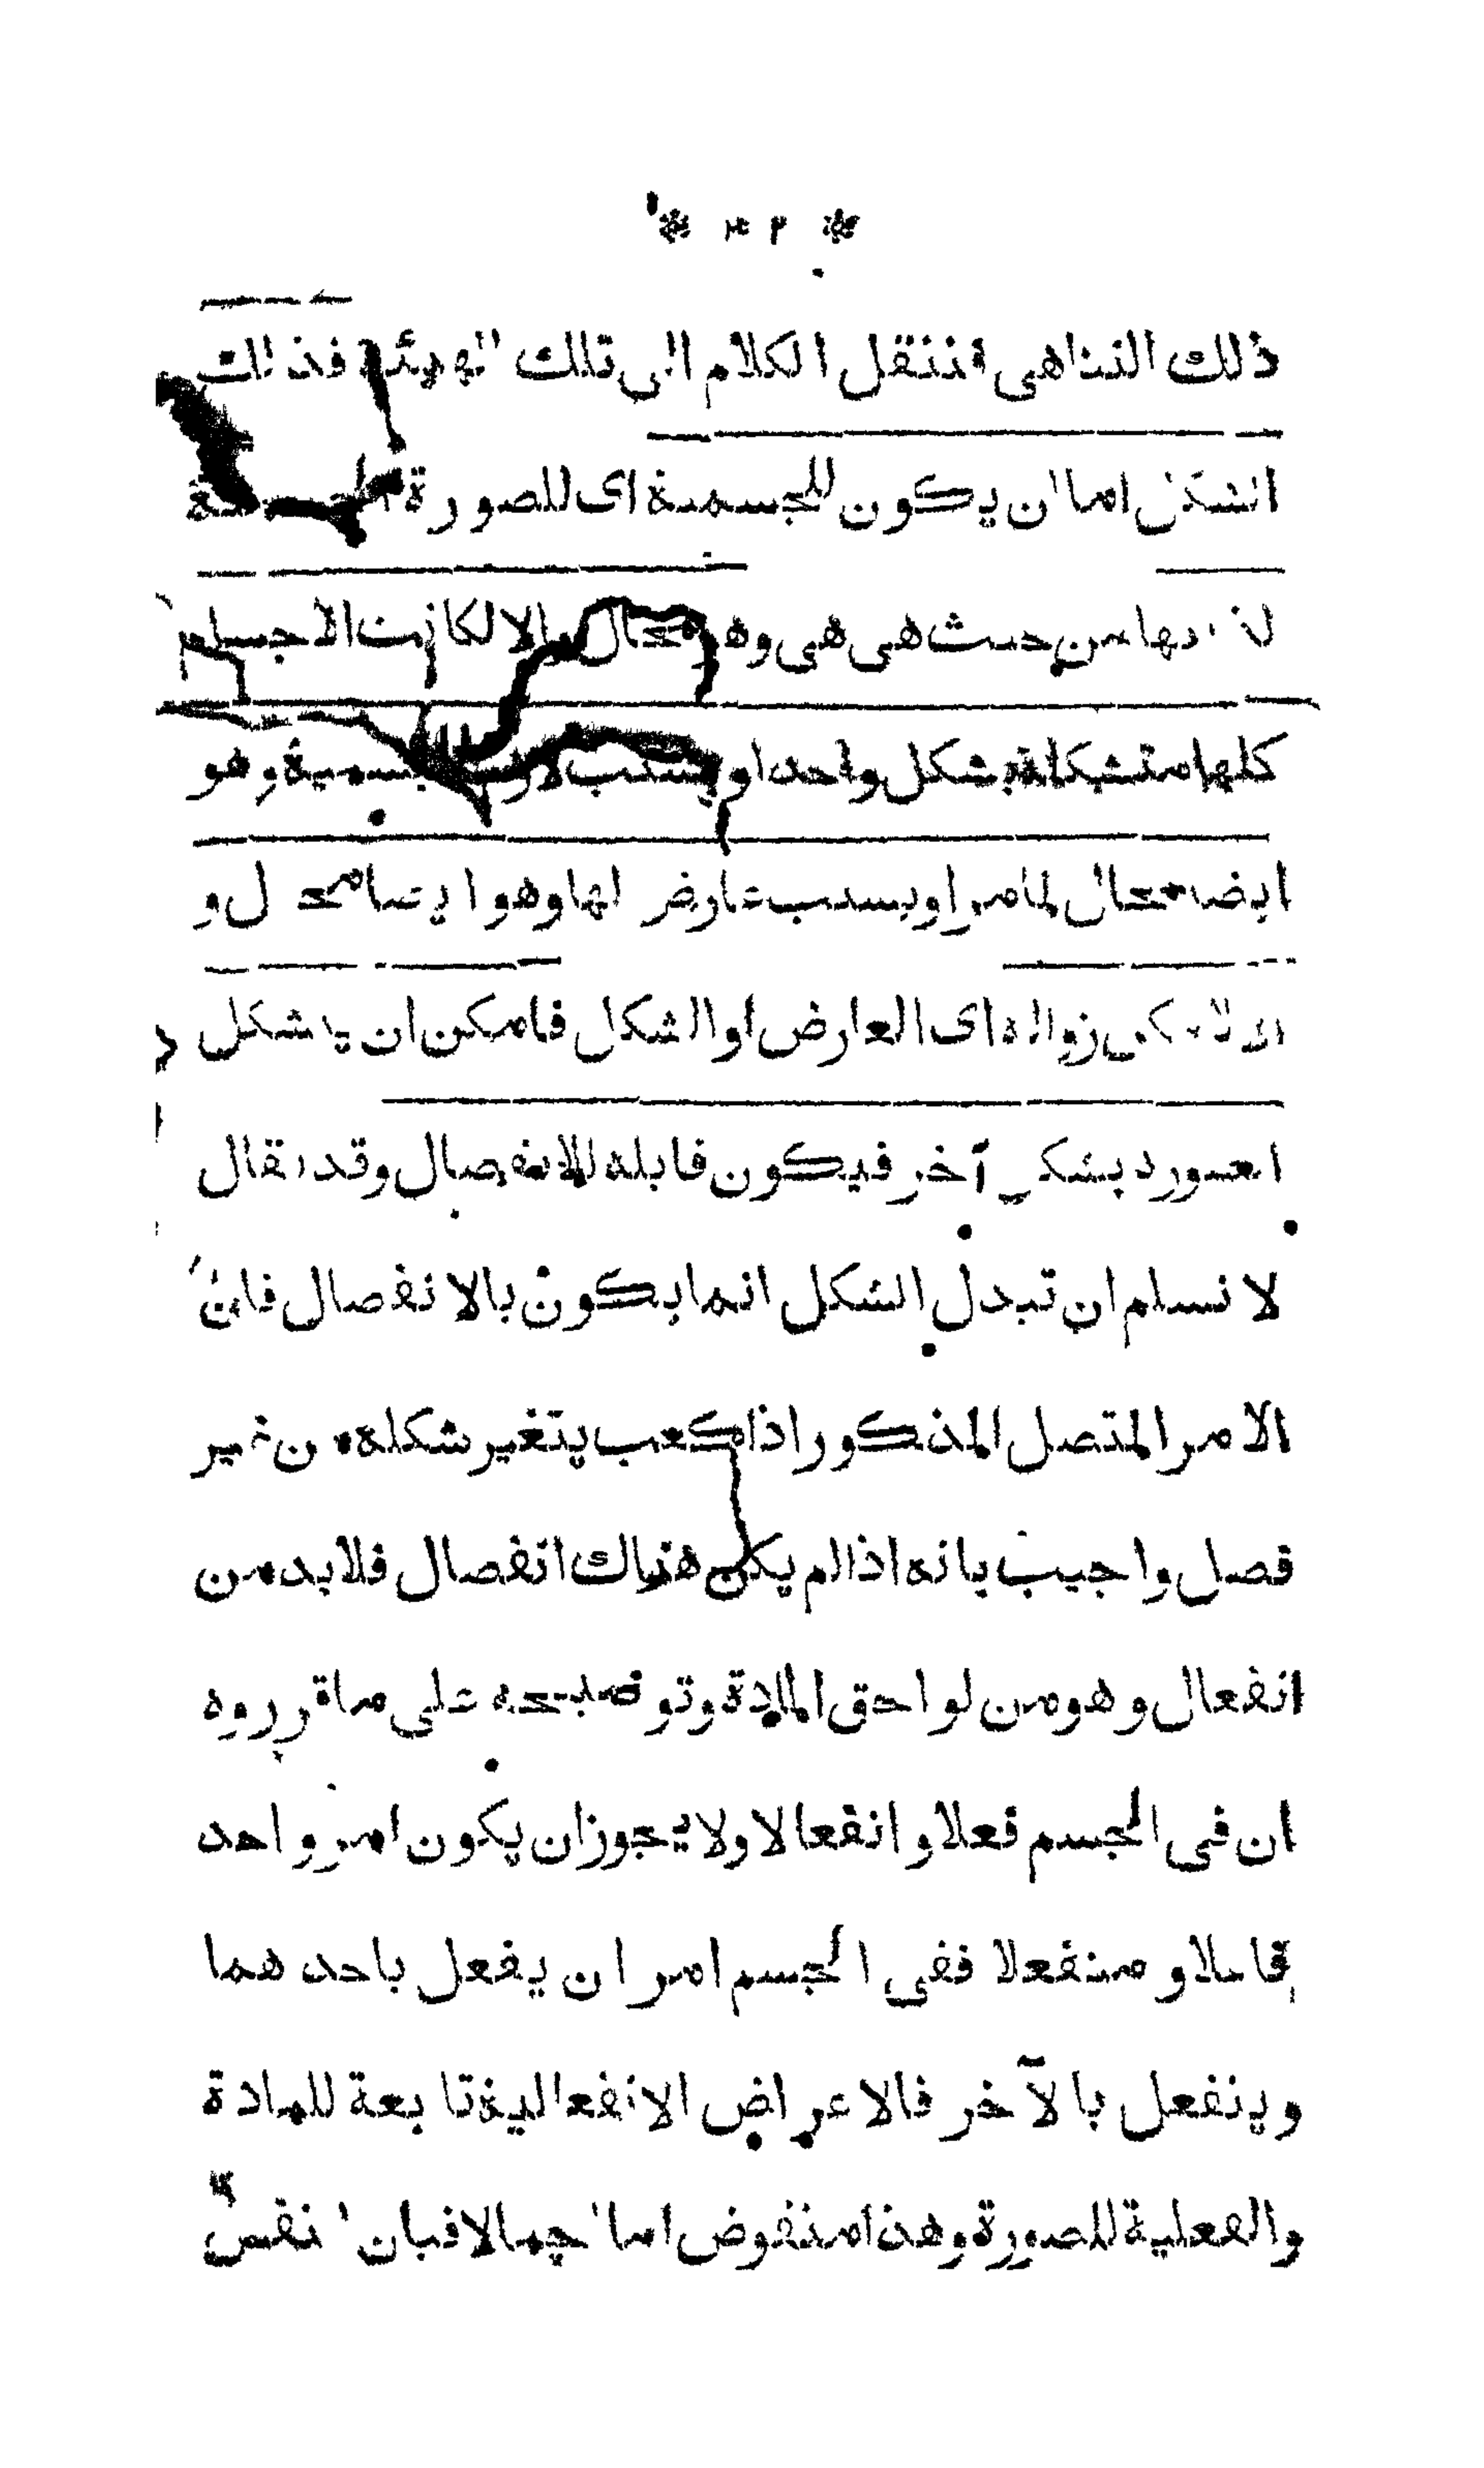 ذلك التناهى فننقل الكلام الى تلك الهيئة فذلك
الشكل اما ان يكون للجسمية اى للصورة الجسمية
لذاتها من حيث هى هى وهو محال والا لكانت الاجسام
كلها متشكلة بشكل واحد او بسبب لازم للجسمية وهو
ايضا محال لما مر او بسبب عارض لها وهو ايضا محال و
الا لامكن زواله اى العارض او الشكل فامكن ان يتشكل
الصورة بشكل آخر فيكون قابلة للانفصال وقد يقال
لا نسلم ان تبدل الشكل انما يكون بالانفصال فان
الامر المتصل المذكور اذا كعب يتغير شكله من غير
فصل واجيب بانه اذا لم يكن هناك انفصال فلا بد من
انفعال وهو من لواحق المادة وتوضيحه على ما قرروه
ان فى الجسم فعلا وانفعالا ولا يجوز ان يكون امر واحد
فاعلا ومنفعلا ففى الجسم امران يفعل باحدهما
وينفعل بالآخر فالاعراض الانفعالية تابعة للمادة
والفعلية للصورة وهذا منقوض اما اجمالا فبان نفس